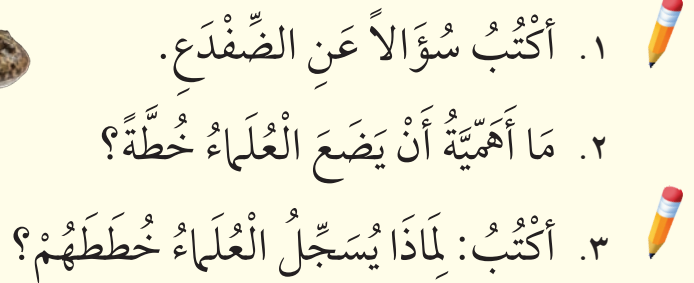 ١. أَكْتُبُ سُؤَالاً عَنِ الضِّفْدَعِ.
٢. مَا أَهَمِّيَّةُ أَنْ يَضَعَ الْعُلَمَاءُ خُطَّةً؟
٣. أَكْتُبُ: لِمَاذَا يُسَجِّلُ الْعُلَمَاءُ خُطَطَهُمْ؟